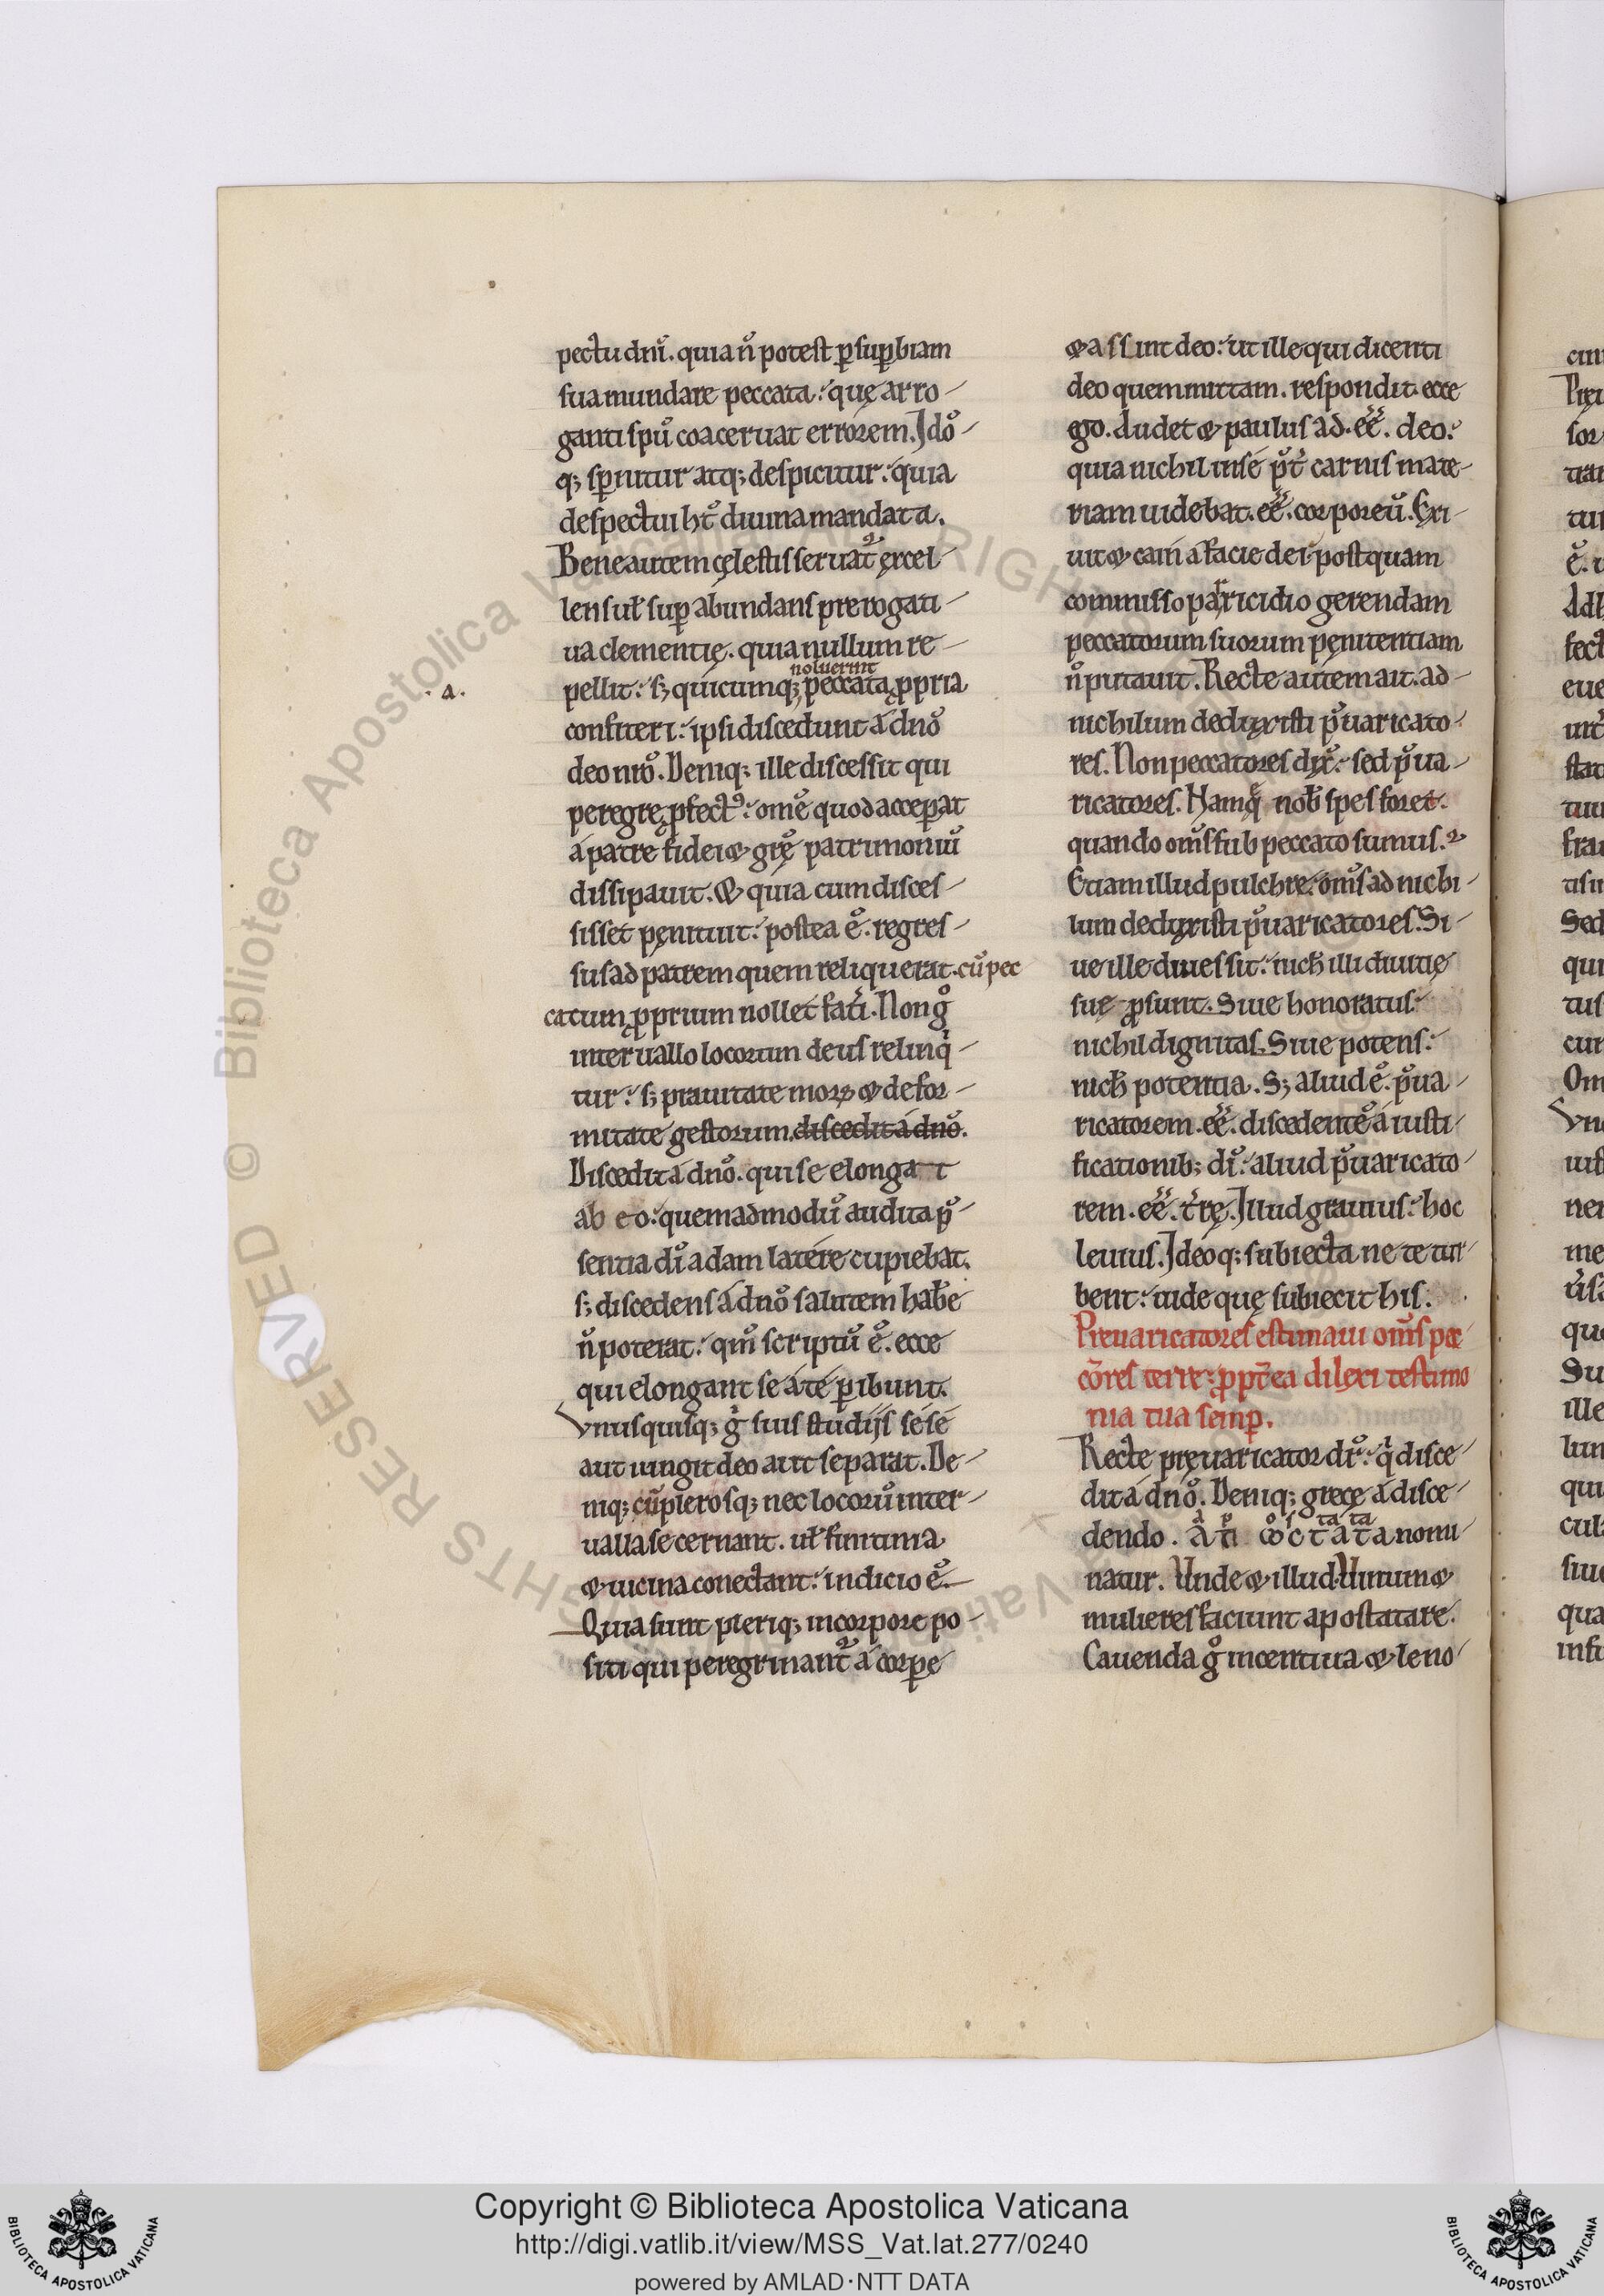 pectu dñi. quia ñ potest ꝑ suꝑbiam
sua mundare peccata. quę arro-
ganti spũ coaceruat errorem. Ido-
q; sꝑnitur atq; despicitur. quia
despectui ht̃ diuina mandata.
Bene autem cęlestis seruat᷑ excel-
lens ut̃ suꝑ abundans prerogati-
ua clementię. quia nullum re-
noluerint
pellit. s; quicumq; peccata ꝓpria
.a.
confiteri. ipsi discedunt á dnõ
deo nrõ. Deniq; ille discessit qui
peregre ꝓfect᷒. om̃e quod acceꝑat
á patre fidei & grę̃ patrimoniũ
dissipauit. & quia cum disces-
sisset pęnituit. postea ẽ. regres-
sus ad patrem quem reliquerat. cũ pec
catum ꝓprium nollet fat̃i. Non g̊
interuallo locorum deus relinq̃-
tur. s; prauitate moꝝ & defor-
mitate gestorum discedit á dnõ.
Discedit á dnõ. qui se elongat
ab eo. quemadmodũ audita p̃-
sentia dĩ adam latére cupiebat.
s; discedens á dnõ salutem hab̃e
ñ poterat. qm̃ scriptũ ẽ. ecce
qui elongant se á té ꝑibunt.
Vnusquisq; g̊ suis studijs sésé
aut iungit deo aut separat. De-
niq; cũ plerosq; nec locorũ inter-
ualla secernant. ut̃ finitima
& uicina conectant. indicio ẽ.
Quia sunt pleriq; in corpore po-
siti qui peregrinant᷑ á corꝑe
& assint deo. ut ille qui dicenti
deo quem mittam. respondit. ecce
ego. Audet & paulus ad. eẽ. deo.
quia nichil in sé p̃t̃ carnis mate-
riam uidebat. eẽ. corporeũ. Exi-
uit & cain a facie dei. postquam
r
commisso paricidio gerendam
peccatorum suorum pęnitentiam
ñ putauit. Recte autem ait. ad
nichilum deduxisti p̃uaricato-
res. Non peccatores dix̃. sed p̃ua-
ricatores. Namq̃ nob̃ spes foret.
quando om̃s sub peccato sumus.
Etiam illud pulchre. om̃s ad nichi-
lum deduxisti p̃uaricatores. Si-
ue ille diues sit. nich̃ illi diuitię
suę ꝓsunt. Siue honoratus.
nichil dignitas. Siue potens.
nich̃ potentia. S; aliud ẽ. p̃ua-
ricatorem. eẽ. discedentẽ á iusti-
ficationib; dĩ. aliud p̃uaricato-
rem. eẽ. t̃rę. Illud grauius. hoc
leuius. Ideoq; subiecta ne te tur-
bent. uide quę subiecit his.
Preuaricatores estimaui om̃s pec-
cõres terre. ꝓpt̃ea dilexi testimo
nia tua semꝑ.
Recte pręuaricator dr̃. q̃ disce-
dit á dnõ. Deniq; grecę á disce-
dendo. nomi-
natur. Unde & illud. Uinum &
mulieres faciunt apostatare.
Cauenda g̊ incentiua & leno-
Copyright © Biblioteca Apostolica Vaticana
http://digi.vatlib.it/view/MSS_Vat.lat.277/0240
powered by AMLAD·NTT DATA
BIBLIOTECA APOSTOLICA VATICANA
BIBLIOTECA APOSTOLICA VATICANA